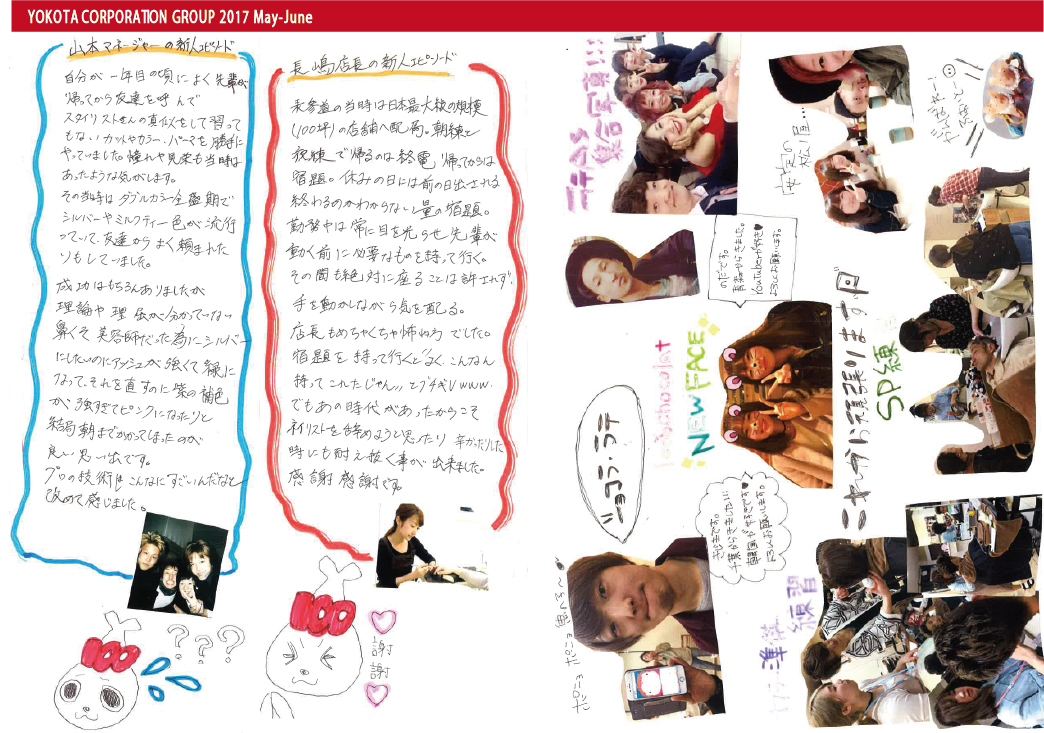 YOKOTA CORPORATION GROUP 2017 May-June
山本マネージャーの新人エピソード
自分が一年目の頃によく先輩が
帰ってから友達を呼んで
スタイリストさんの真似をして習って
もないカットやカラー・パーマを勝手に
やっていました。憧れや見栄も当時は
あったような気がします。
その当時はダブルカラー全盛期で
シルバーやミルクティー色が流行
っていて、友達からよく頼まれた
りもしていました。
成功はもちろんありましたが
理論や理屈が分かっていない
鼻くそ美容師だった為にシルバー
にしたいのにアッシュが強くて緑に
なって、それを直すのに紫の補色
が強すぎてピンクになったりと
結局朝までかかってしまったのが
良い思い出です。
プロの技術はこんなにすごいんだなと
改めて感じました。
???
長嶋店長の新人エピソード
表参道の当時は日本最大級の規模
(100坪)の店舗へ配属。朝練と
夜練で帰るのは終電 帰ってからは
宿題。休みの日には前の日出される
終わるのかわからない量の宿題。
勤務中は常に目を光らせ先輩が
動く前に必要なものを持って行く。
その間も絶対に座ることは許されず、
手を動かしながら気を配る。
店長もめちゃくちゃ怖い方でした。
宿題を持って行くと「よくこんなん
持ってこれたじゃん」とブチギレwww.
でもあの時代があったからこそ
ネイリストを辞めようと思ったり辛かったりした
時にも耐え抜く事が出来ました。
感謝感謝です。
100
100
謝
謝
集合写真!!!
のだです。
青森からきました。
Youtuberが好き♥
よろしくお願いします。
NEW FACE
ショコラ・ラテ
千葉からきました!!
韓国が好きです♥
よろしくお願いします。
これから頑張ります!!
SP練
準備
練習